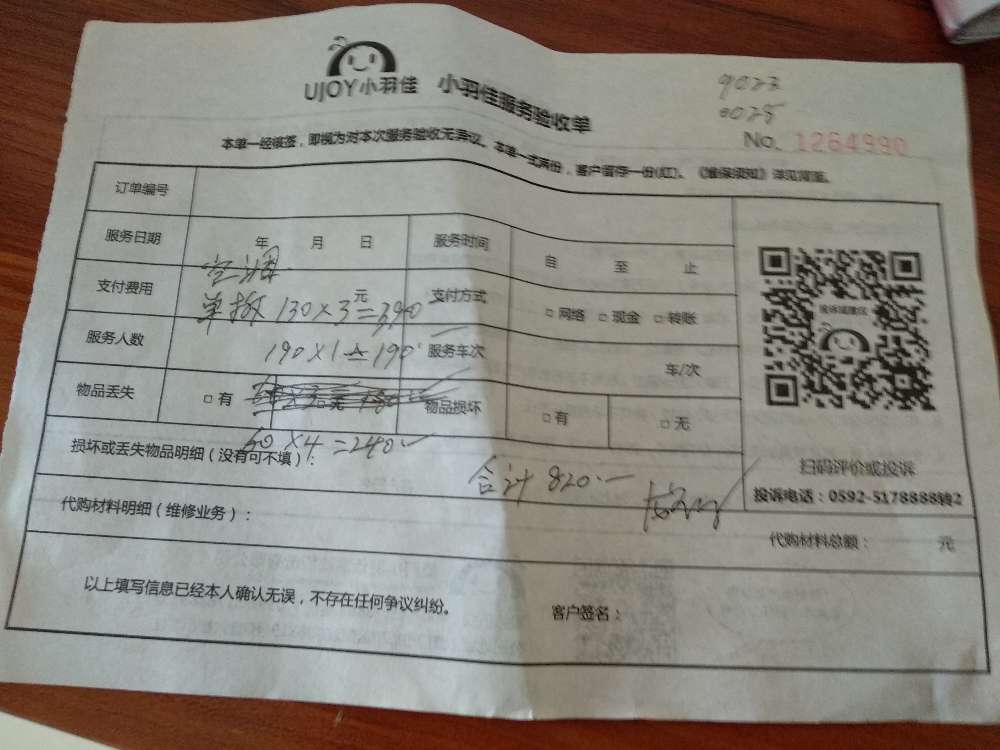 UJOY小羽佳 小羽佳服务验收单
9023
0025
No. 1264990
本单一经核签，即视为对本次服务验收无异议。本单一式两份，客户留存一份(红)。《维保须知》详见背面。
订单编号
服务日期 年 月 日 服务时间 自 至 止
空调
支付费用 元 支付方式 □ 网络 □ 现金 □ 转账
130×3=390
服务人数 服务车次 车/次
190×1=190
物品丢失 □ 有 □ 无 物品损坏 □ 有 □ 无
60×4=240
损坏或丢失物品明细（没有可不填）：
合计 820.
扫码评价或投诉
投诉电话：0592-5178888转2
代购材料明细（维修业务）： 代购材料总额： 元
以上填写信息已经本人确认无误，不存在任何争议纠纷。 客户签名：